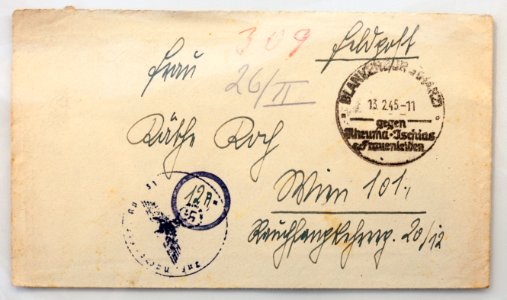 309
Feldpost
Frau
26/II
BLANKENBURG (HARZ)
13.2.45-11
gegen
Rheuma-Ischias
u. Frauenleiden
Käthe Koch
Wien 101.
12 R
20/12